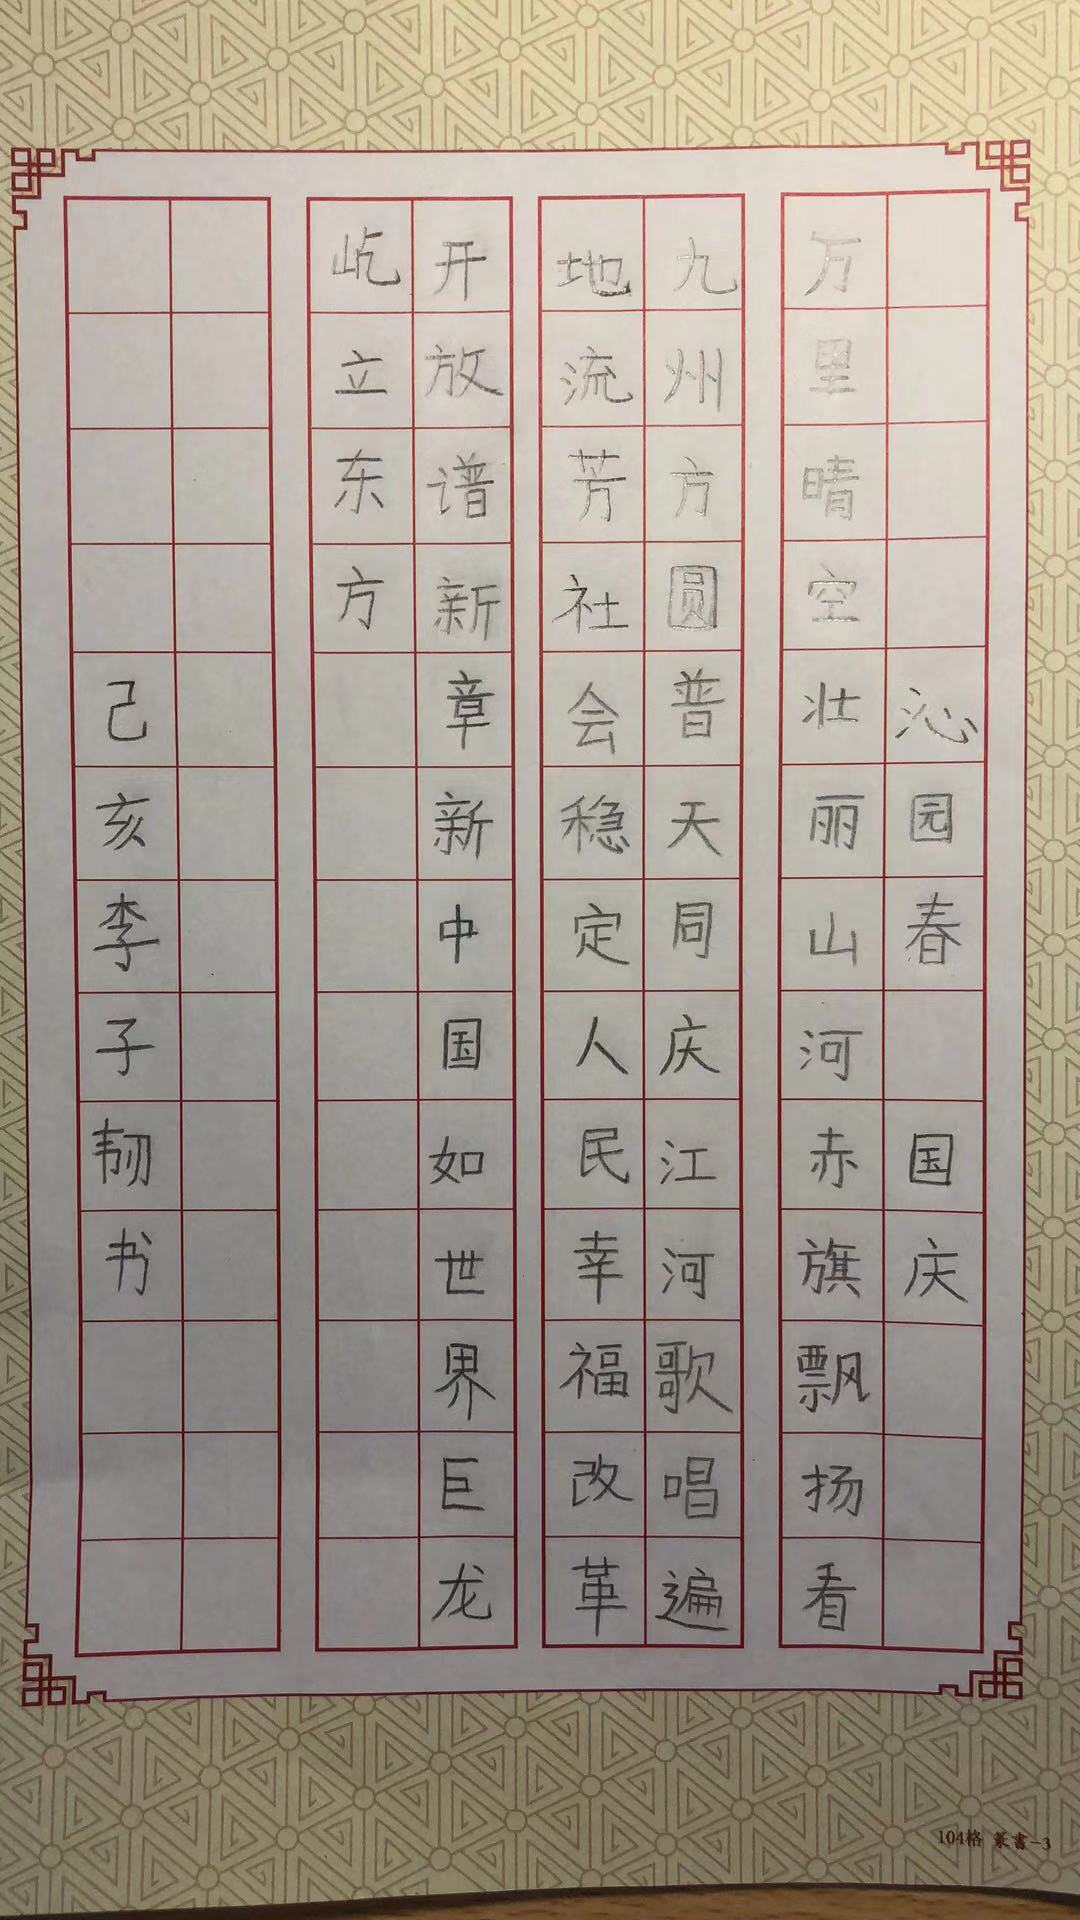 沁园春 国庆
万里晴空壮丽山河赤旗飘扬看
九州方圆普天同庆江河歌唱遍
地流芳社会稳定人民幸福改革
开放谱新章新中国如世界巨龙
屹立东方
己亥李子韧书
104格 篆書-3